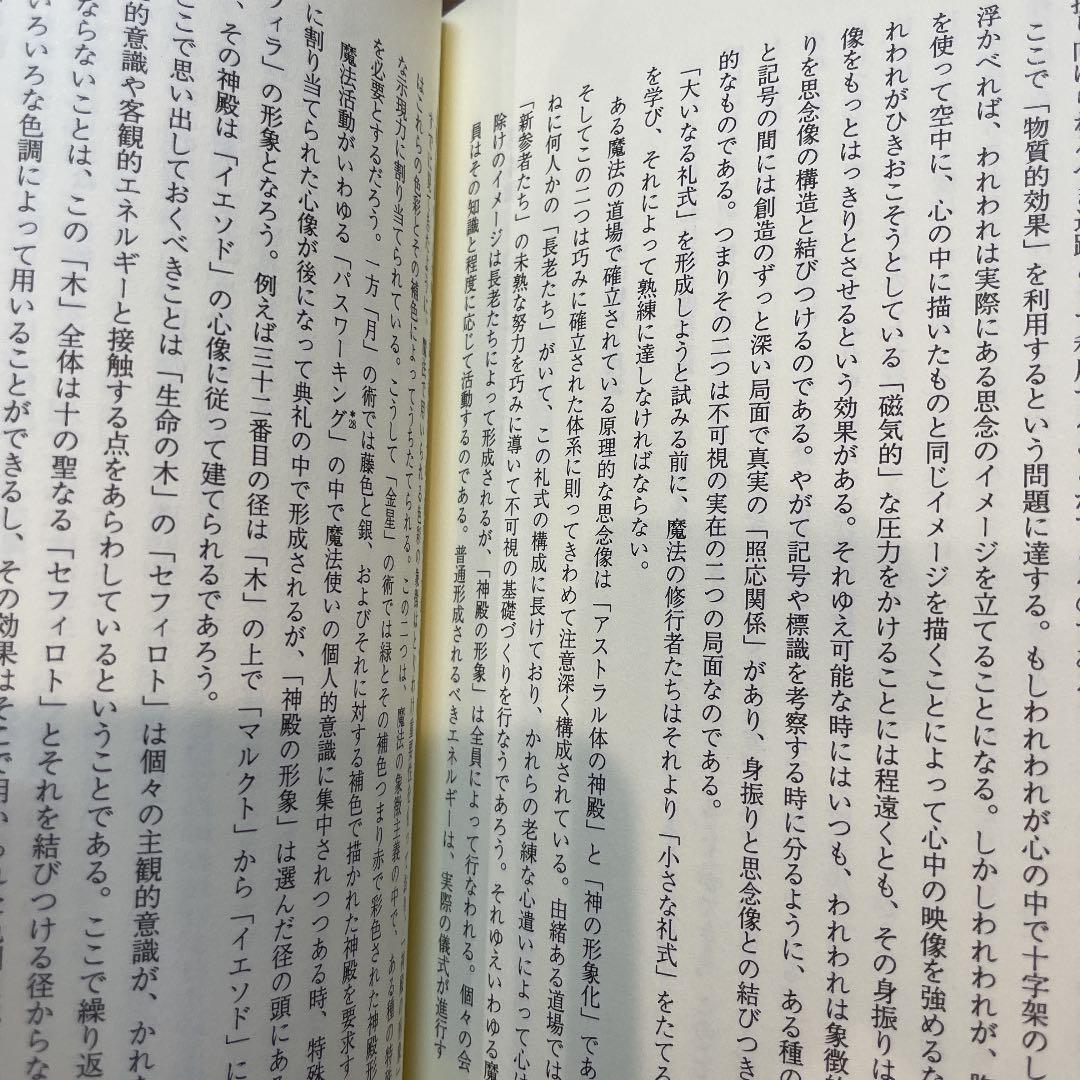 ここで「物質的効果」を利用するという問題に達する。もしわれわれが心の中で十字架のし
浮かべれば、われわれは実際にある思念のイメージを立てることになる。しかしわれわれが、
を使って空中に、心の中に描いたものと同じイメージを描くことによって心中の映像を強める
われがひきおこそうとしている「磁気的」な圧力をかけることには程遠くとも、その身振りは
像をもっとはっきりとさせるという効果がある。それゆえ可能な時にはいつも、われわれは象徴
りを思念像の構造と結びつけるのである。やがて記号や標識を考察する時に分るように、ある種の
と記号の間には創造のずっと深い局面で真実の「照応関係」があり、身振りと思念像との結びつき
的なものである。つまりその二つは不可視の実在の二つの局面なのである。
「大いなる礼式」を形成しようと試みる前に、魔法の修行者たちはそれより「小さな礼式」をたてる
を学び、それによって熟練に達しなければならない。
ある魔法の道場で確立されている原理的な思念像は「アストラル体の神殿」と「神の形象化」であ
そしてこの二つは巧みに確立された体系に則ってきわめて注意深く構成されている。由緒ある道場では
ねに何人かの「長老たち」がいて、この礼式の構成に長けており、かれらの老練な心遣いによって心
「新参者たち」の未熟な努力を巧みに導いて不可視の基礎づくりを行なうであろう。それゆえいわゆる魔
除けのイメージは長老たちによって形成されるが、「神殿の形象」は全員によって行なわれる。個々の会
員はその知識と程度に応じて活動するのである。普通形成されるべきエネルギーは、実際の儀式が進行す
はこれらの色彩とその補色によってうちたてられる。この二つは、魔法の象徴主義の中で、ある種の特
な示現力に割り当てられている。こうして「金星」の術では緑とその補色つまり赤で彩色された神殿形
を必要とするだろう。一方「月」の術では藤色と銀、およびそれに対する補色で描かれた神殿を要求す
魔法活動がいわゆる「パスワーキング」*28の中で魔法使いの個人的意識に集中されつつある時、特殊
に割り当てられた心像が後になって典礼の中で形成されるが、「神殿の形象」は選んだ径の頭にあ
フィラ」の形象となろう。例えば三十二番目の径は「木」の上で「マルクト」から「イエソド」に
、その神殿は「イエソド」の心像に従って建てられるであろう。
ここで思い出しておくべきことは「生命の木」の「セフィロト」は個々の主観的意識が、かれ
的意識や客観的エネルギーと接触する点をあらわしているということである。ここで繰り返
ならないことは、この「木」全体は十の聖なる「セフィロト」とそれを結びつける径からな
いろいろな色調によって用いることができるし、その効果はそこで用